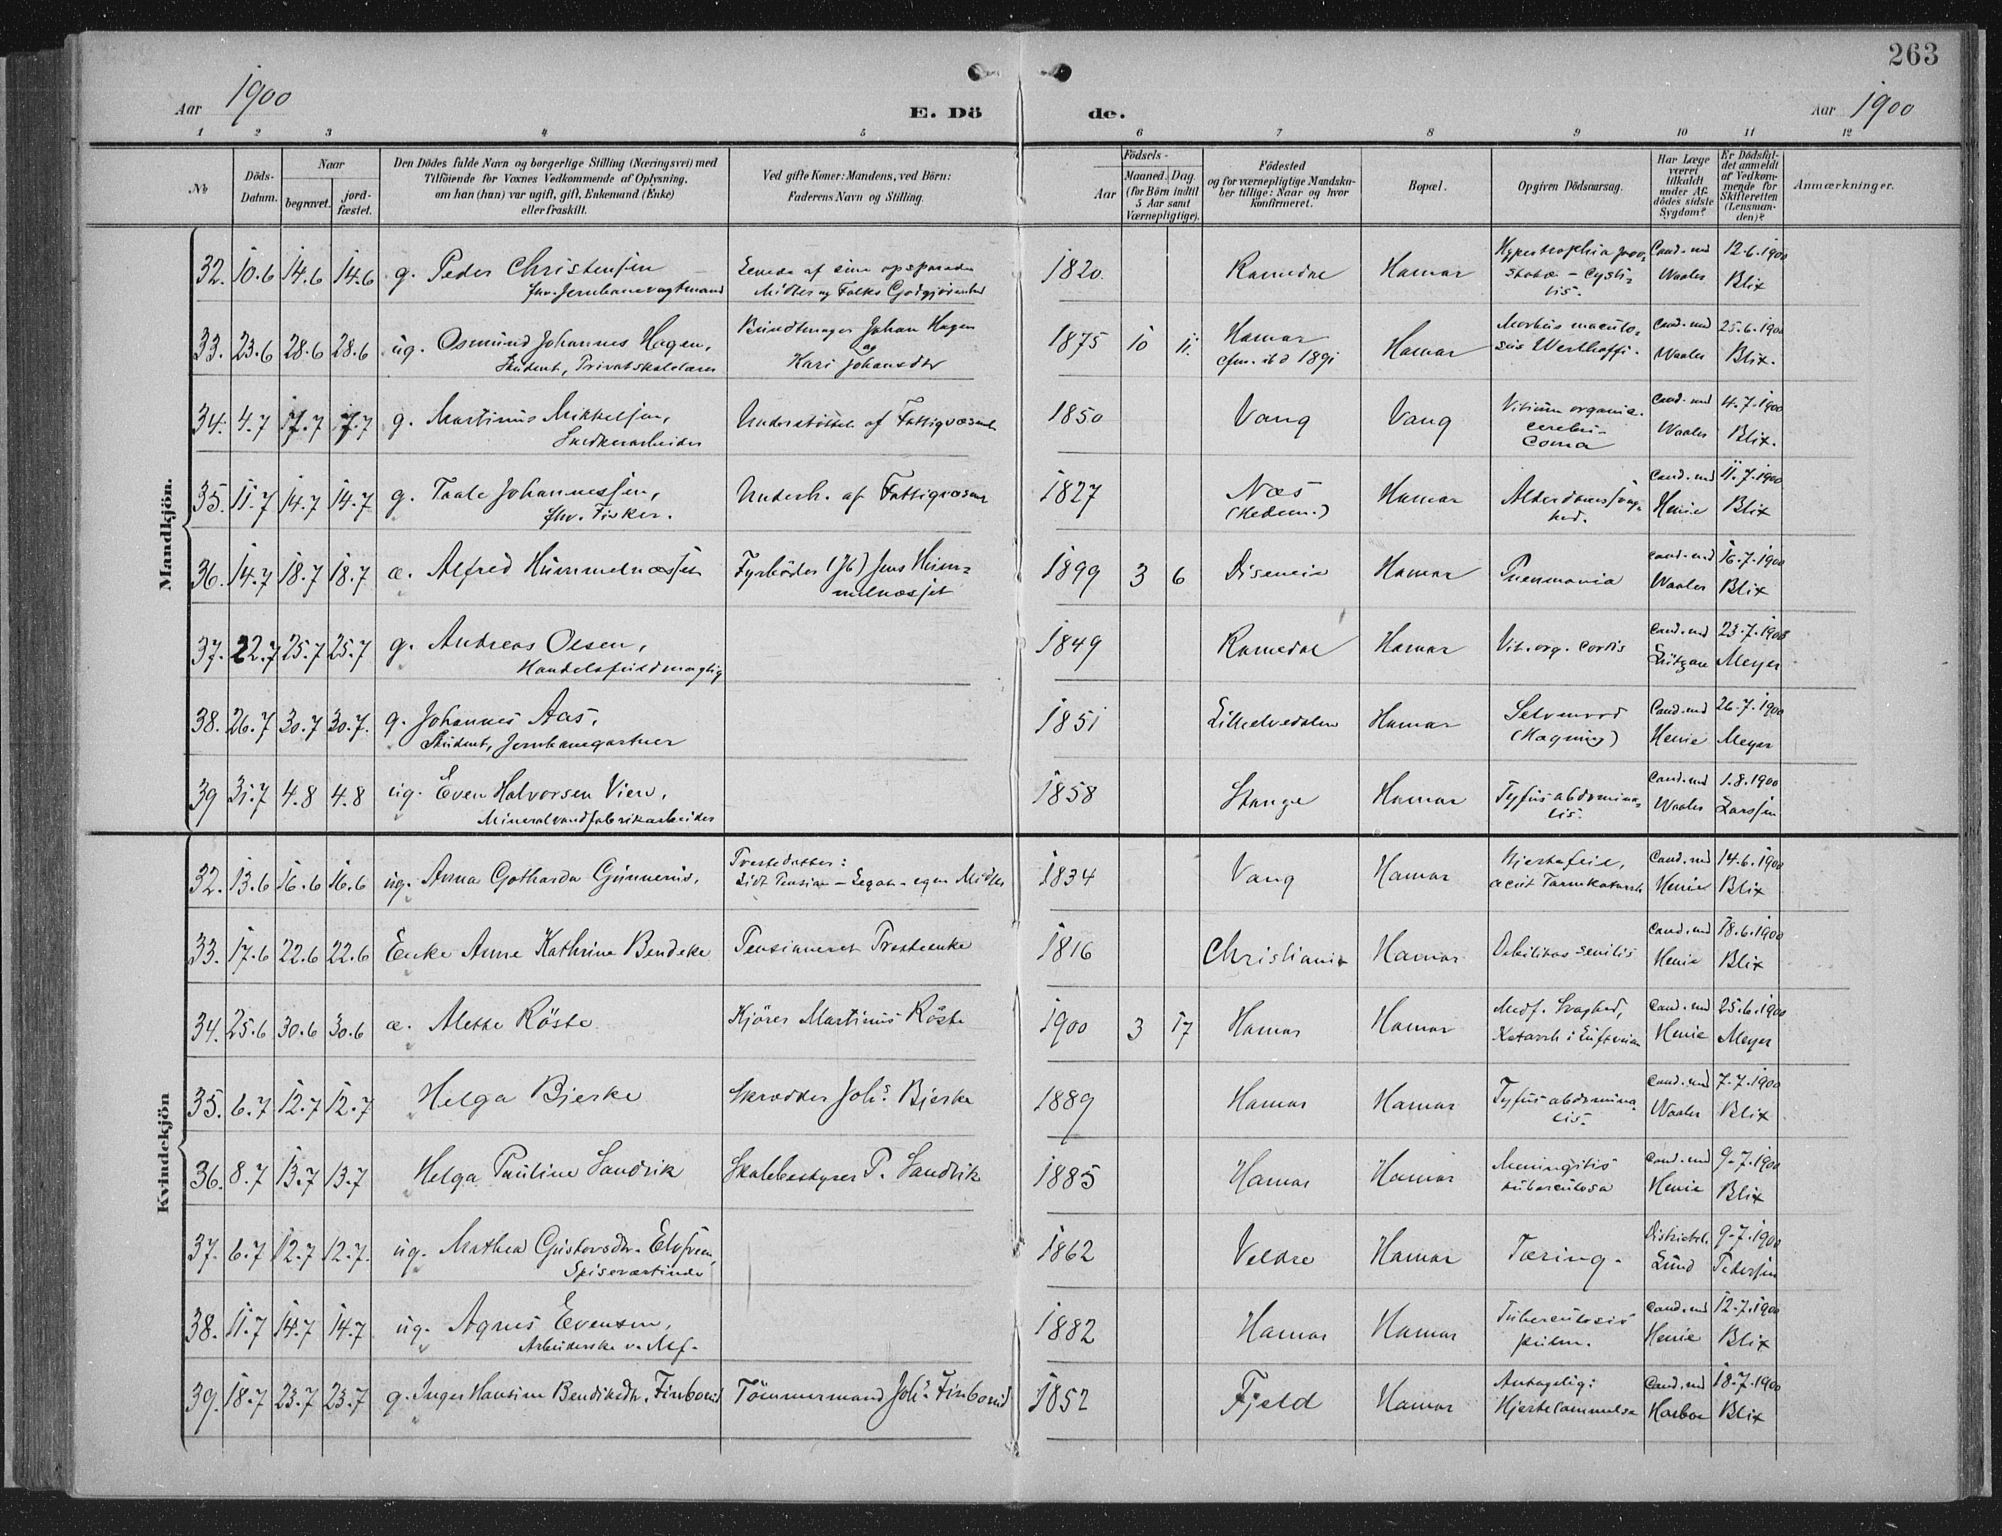 263
Aar 1900
E. Dö
de.
Aar 1900
1 2 3 4 5 6 7 8 9 10 11 12
No
Döds-Datum.
Naar
begravet.
jord-fæstet.
Den Dödes fulde Navn og borgerlige Stilling (Næringsvei) med
Tilföiende for Voxnes Vedkommende af Oplysning,
om han (hun) var ugift, gift, Enkemand (Enke)
eller fraskilt.
Ved gifte Koner: Mandens, ved Börn:
Faderens Navn og Stilling.
Födsels-
Aar
Maaned. Dag.
(for Börn indtil
5 Aar samt
Værnepligtige).
Födested
og for værnepligtige Mandska-
ber tillige: Naar og hvor
konfirmeret.
Bopæl.
Opgiven Dödsaarsag.
Har Læge
været
tilkaldt
under Af-
dödes sidste
Sygdom?
Er Dödsfal-
det anmeldt
af Vedkom-
mende for
Skifteretten
(Lensman-
den)?
Anmærkninger.
Mandkjön.
32. 10.6 14.6 14.6 g. Peder Christensen
fhv. Jernbanevagtmand
Levede af sine opsparede
Midler og Folks Godgjörenhed
1820. Romedal Hamar
Hypertrophia pro-
statæ - cysti-
tis.
Cand. med Waaler
12.6.1900 Blix
33. 23.6 28.6 28.6 ug. Osmund Johannes Hagen,
Student, Privatskolelærer
Bundtmager Johan Hagen
og
Kari Johansdtr
1875 10 11. Hamar
cfm. ibd 1891
Hamar
Morbus maculo-
sus Werlhoffi.
Cand. med Waaler
25.6.1900 Blix.
34. 4.7 17.7 17.7 g. Martinus Mikkelsen,
Snedkerarbeider
Understöttet af Fattigvæsenet
1850 Vang Vang
Vitium organic.
cerebri-
Coma
Cand. med Waaler
4.7.1900 Blix.
35. 11.7 14.7 14.7 g. Taale Johannessen,
fhv. Fisker.
Underh. af Fattigvæsen
1827 Næs
(Hedem.)
Hamar
Alderdomssvag-
hed.
Cand. med Henie
11.7.1900 Blix
36. 14.7 18.7 18.7 æ. Alfred Hummelnæsset
Fyrböder (Jb) Jens Hum-
melnæsset
1899 3 6 Disenein Hamar Pneumonia
Cand. med Waaler
16.7.1900 Blix
37. 22.7 25.7 25.7 g. Andreas Olsen,
Handelsfuldmægtig
1849 Romedal Hamar Vit. org. cordis
Cand. med
23.7.1900 Meyer
38. 26.7 30.7 30.7. g. Johannes Aas.
Student, Jernbanegartner
1851 Lilleelvedalen Hamar
Selvmord
(Hægning)
Cand. med Henie
26.7.1900 Meyer
39 31.7 4.8 4.8 ug. Even Halvorsen Vien,
Mineralvandfabrikarbeider
1858 Stange Hamar
Tyfus abdomina-
lis.
Cand. med Waaler
1.8.1900 Larssen
Kvindekjön
32. 13.6 16.6 16.6 ug. Anna Gotharda Gunnerus,
Prestedatter:
Lidt Pension - Legat - egne Midler
1834 Vang Hamar
Hjertefeil,
acut Tarmkatarrh
Cand. med Henie
14.6.1900 Blix
33. 17.6 22.6 22.6 Enke Anne Kathrine Bendeke
Pensioneret Presteenke
1816 Christiania Hamar Debilitas senilis
Cand. med Henie
18.6.1900 Blix
34. 25.6 30.6 30.6 æ. Alette Röste
Kjörer Martinus Röste
1900 3 17 Hamar Hamar
Medf. Svaghed,
Katarrh i Luftveiene
Cand. med Henie
25.6.1900 Meyer
35. 6.7 12.7 12.7 Helga Bjerke
Skrædder Johs. Bjerke
1889 Hamar Hamar
Tyfus abdomina-
lis.
Cand. med Waaler
7.7.1900 Blix
36. 8.7 13.7 13.7 Helga Pauline Sandvik
Skolebestyrer P. Sandvik
1885 Hamar Hamar
Meningitis
tuberculosa
Cand. med Henie
9.7.1900 Blix
37. 6.7 12.7 12.7. ug. Mathea Gustavsdtr.
Spiseværtinde
1862 Veldre Hamar Tæring.
Districtsl. Lund
9.7.1900 Pedersen
38. 11.7 14.7 14.7 ug. Agnes Evensen,
Arbeiderske v. Mf.
1882 Hamar Hamar
Tuberculosis
pulm.
Cand. med Henie
12.7.1900 Blix
39. 18.7 23.7 23.7 g. Inger Hansine Bendiksdtr. Finborud
Tömmermand Johs. Finborud
1852 Fjeld Hamar
Antagelig:
Hjertelammelse
Cand. med Harboe
18.7.1900 Blix